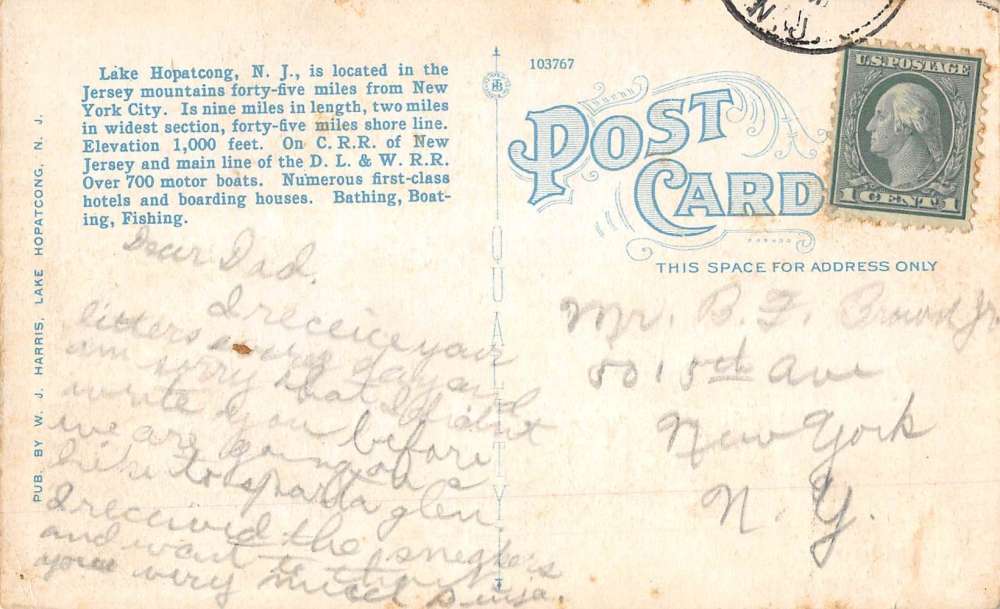 Lake Hopatcong, N. J., is located in the
Jersey mountains forty-five miles from New
York City. Is nine miles in length, two miles
in widest section, forty-five miles shore line.
Elevation 1,000 feet. On C. R. R. of New
Jersey and main line of the D. L. & W. R. R.
Over 700 motor boats. Numerous first-class
hotels and boarding houses. Bathing, Boat-
ing, Fishing.
PUB. BY W. J. HARRIS, LAKE HOPATCONG, N. J.
Dear Dad.
I receice your
litters every day and
am sorry that I didnt
write you before
we are going on a
hike to sparta glen.
I received the sneakers
and want to thank
you very much
103767
POST CARD
THIS SPACE FOR ADDRESS ONLY
N.J.
U.S. POSTAGE
1 CENT 1
Mr. B. F. Brown Jr
501 5th Ave
New York
N. Y.